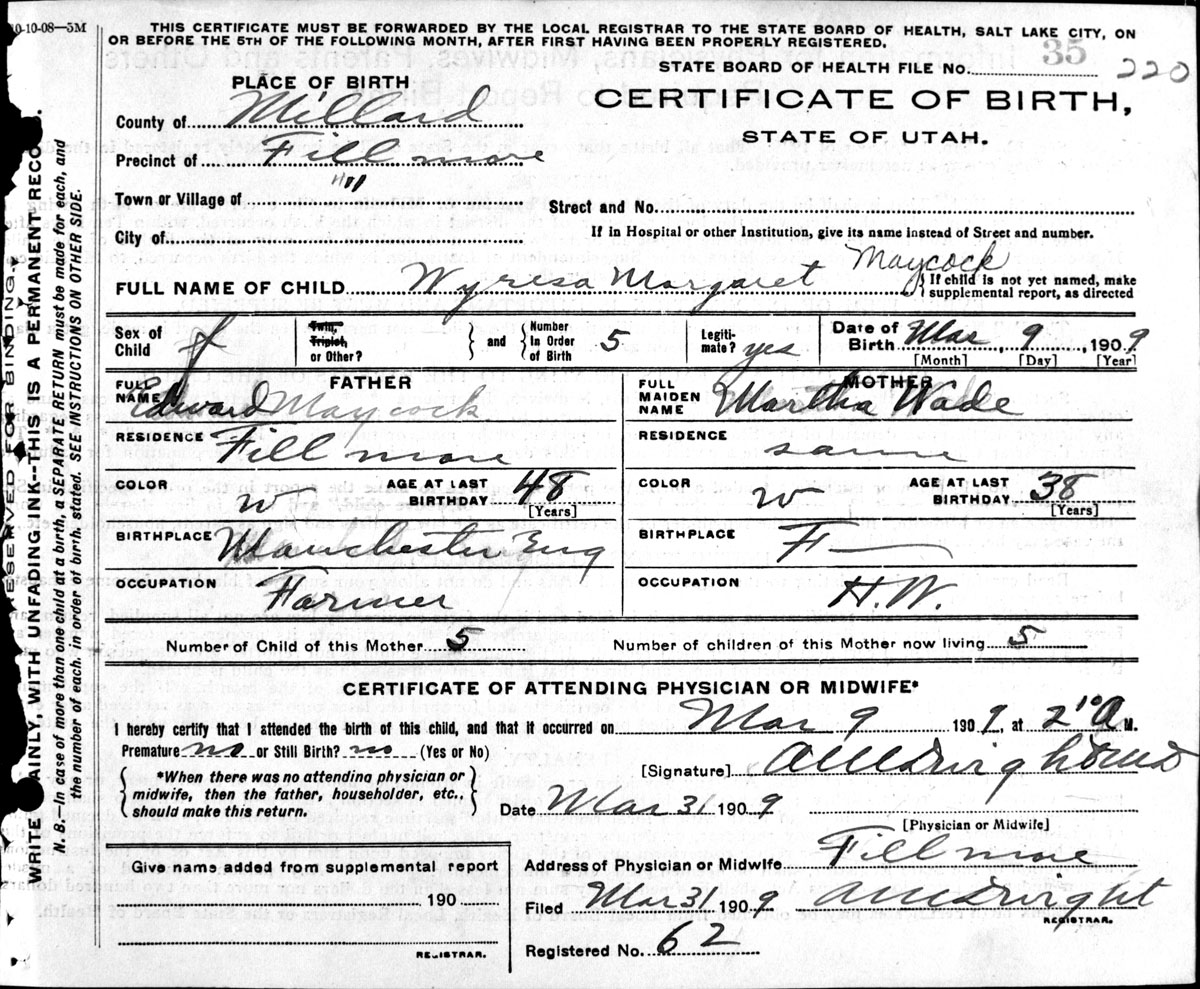 10-10-08—5M
THIS CERTIFICATE MUST BE FORWARDED BY THE LOCAL REGISTRAR TO THE STATE BOARD OF HEALTH, SALT LAKE CITY, ON
OR BEFORE THE 5TH OF THE FOLLOWING MONTH, AFTER FIRST HAVING BEEN PROPERLY REGISTERED.
STATE BOARD OF HEALTH FILE No. 35 220
PLACE OF BIRTH
CERTIFICATE OF BIRTH,
STATE OF UTAH.
County of Millard
Precinct of Fillmore
Town or Village of
Street and No.
City of
If in Hospital or other Institution, give its name instead of Street and number.
FULL NAME OF CHILD Wyresa Margaret Maycock
If child is not yet named, make
supplemental report, as directed
Sex of Child f
Twin, Triplet, or Other? and Number In Order of Birth 5
Legitimate? yes
Date of Birth Mar 9, 1909
[Month] [Day] [Year]
FATHER
FULL NAME Edward Maycock
RESIDENCE Fillmore
COLOR W AGE AT LAST BIRTHDAY 48
[Years]
BIRTHPLACE Manchester Eng
OCCUPATION Farmer
MOTHER
FULL MAIDEN NAME Martha Wade
RESIDENCE same
COLOR W AGE AT LAST BIRTHDAY 38
[Years]
BIRTHPLACE F—
OCCUPATION H.W.
Number of Child of this Mother 5
Number of children of this Mother now living 5
CERTIFICATE OF ATTENDING PHYSICIAN OR MIDWIFE*
I hereby certify that I attended the birth of this child, and that it occurred on Mar 9 1909, at 2 10 A M.
Premature no or Still Birth? no (Yes or No)
*When there was no attending physician or
midwife, then the father, householder, etc.,
should make this return.
[Signature]
Date Mar 31 1909
[Physician or Midwife]
Give name added from supplemental report
190
REGISTRAR.
Address of Physician or Midwife Fillmore
Filed Mar 31 1909
REGISTRAR.
Registered No. 62
RESERVED FOR BINDING.
AINLY, WITH UNFADING INK—THIS IS A PERMANENT RECO
N. B.—In case of more than one child at a birth, a SEPARATE RETURN must be made for each, and
the number of each, in order of birth, stated. SEE INSTRUCTIONS ON OTHER SIDE.